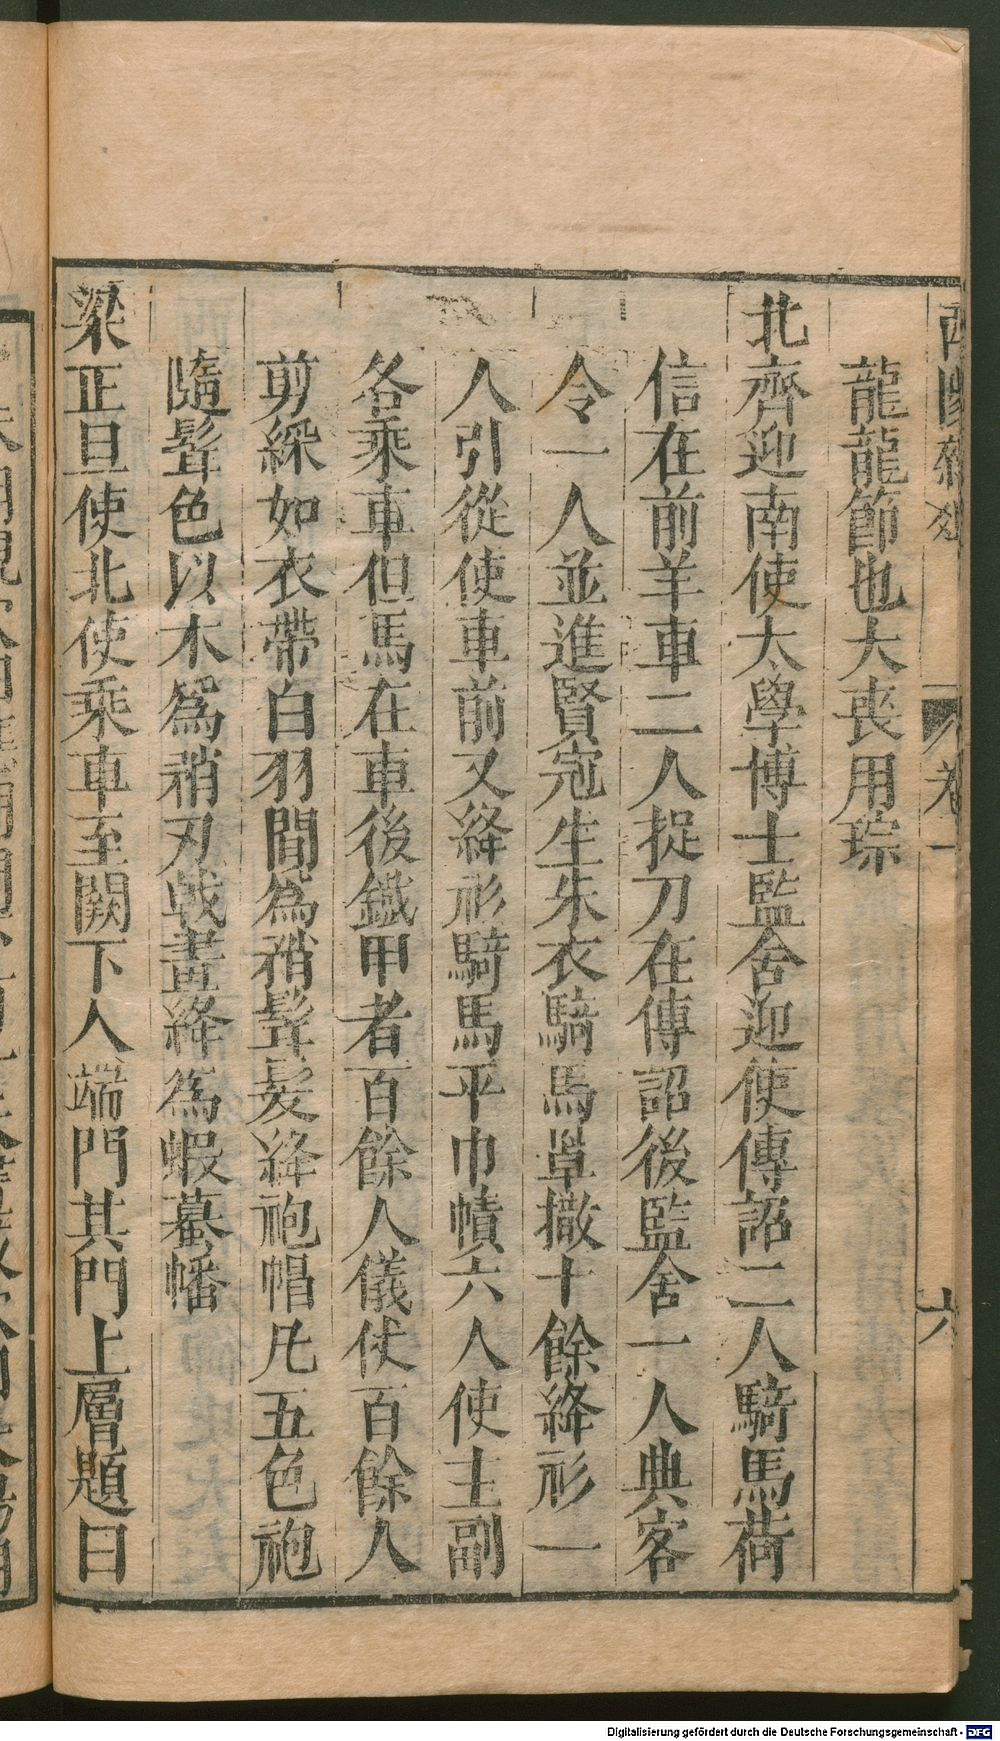 酉陽雜俎
卷一
六
龍龍節也大喪用琮
北齊迎南使太學博士監舍迎使傳詔二人騎馬荷
信在前羊車二人捉刀在傳詔後監舍一人典客
令一人並進賢冠生朱衣騎馬罩撒十餘絳衫一
人引從使車前又絳衫騎馬平巾幘六人使主副
各乘車但馬在車後鐵甲者百餘人儀仗百餘人
剪綵如衣帶白羽間為稍髶髮絳袍帽凡五色袍
隨髶色以木為稍刃戟畫絳為蝦蟇幡
梁正旦使北使乘車至闕下入端門其門上層題曰
Digitalisierung gefördert durch die Deutsche Forschungsgemeinschaft - DFG